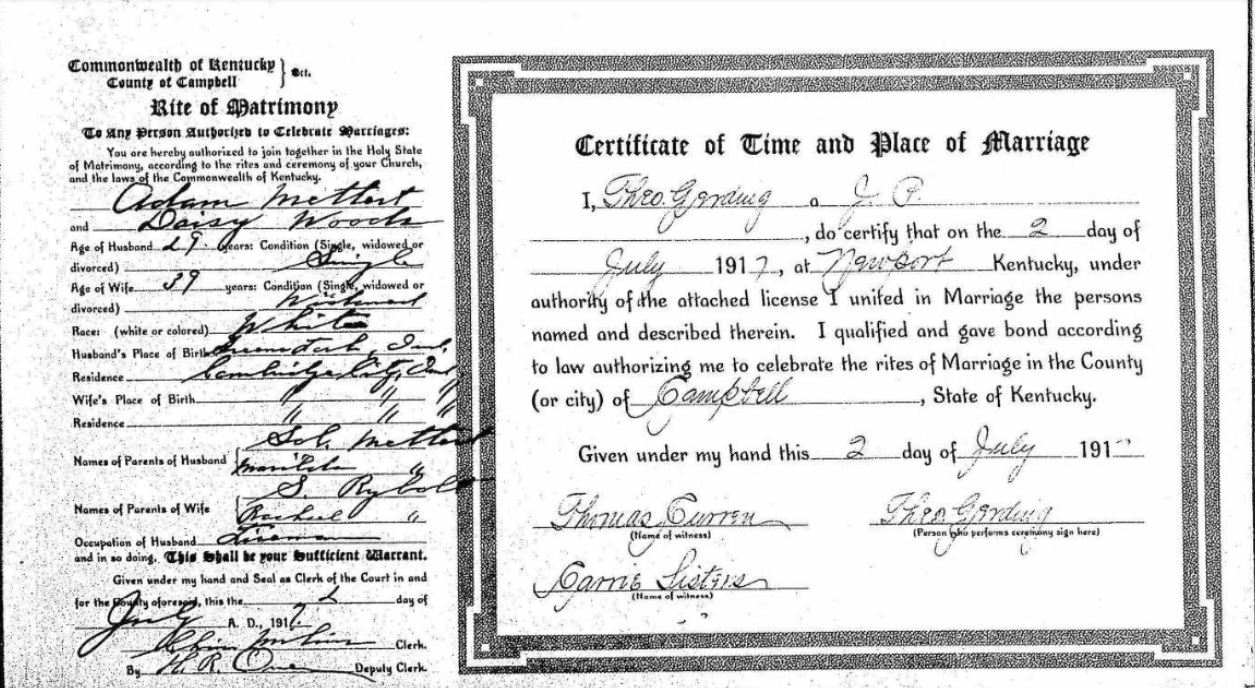 Commonwealth of Kentucky
County of Campbell } Sct.
Rite of Matrimony
To Any Person Authorized to Celebrate Marriages:
You are hereby authorized to join together in the Holy State
of Matrimony, according to the rites and ceremony of your Church,
and the laws of the Commonwealth of Kentucky.
Adam Mettert
and Daisy Woods
Age of Husband 29 years: Condition (Single, widowed or
divorced) Single
Age of Wife 39 years: Condition (Single, widowed or
divorced) Widowed
Race: (white or colored) White
Husband's Place of Birth Ind.
Residence Cambridge City, Ind
Wife's Place of Birth " " "
Residence " " "
Sol. Mettert
Names of Parents of Husband { Matilda "
S. Rybolt
Names of Parents of Wife { Rachael "
Occupation of Husband Fireman
and in so doing. This Shall be your Sufficient Warrant.
Given under my hand and Seal as Clerk of the Court in and
for the County aforesaid, this the 2 day of
July A. D., 1917.
Clerk.
By H. R. Deputy Clerk.
Certificate of Time and Place of Marriage
I, Theo. Gerding a J. P.
, do certify that on the 2 day of
July 1917, at Newport Kentucky, under
authority of the attached license I united in Marriage the persons
named and described therein. I qualified and gave bond according
to law authorizing me to celebrate the rites of Marriage in the County
(or city) of Campbell , State of Kentucky.
Given under my hand this 2 day of July 191
Thomas Curren Theo. Gerding
(Name of witness) (Person who performs ceremony sign here)
Carrie Sisters
(Name of witness)